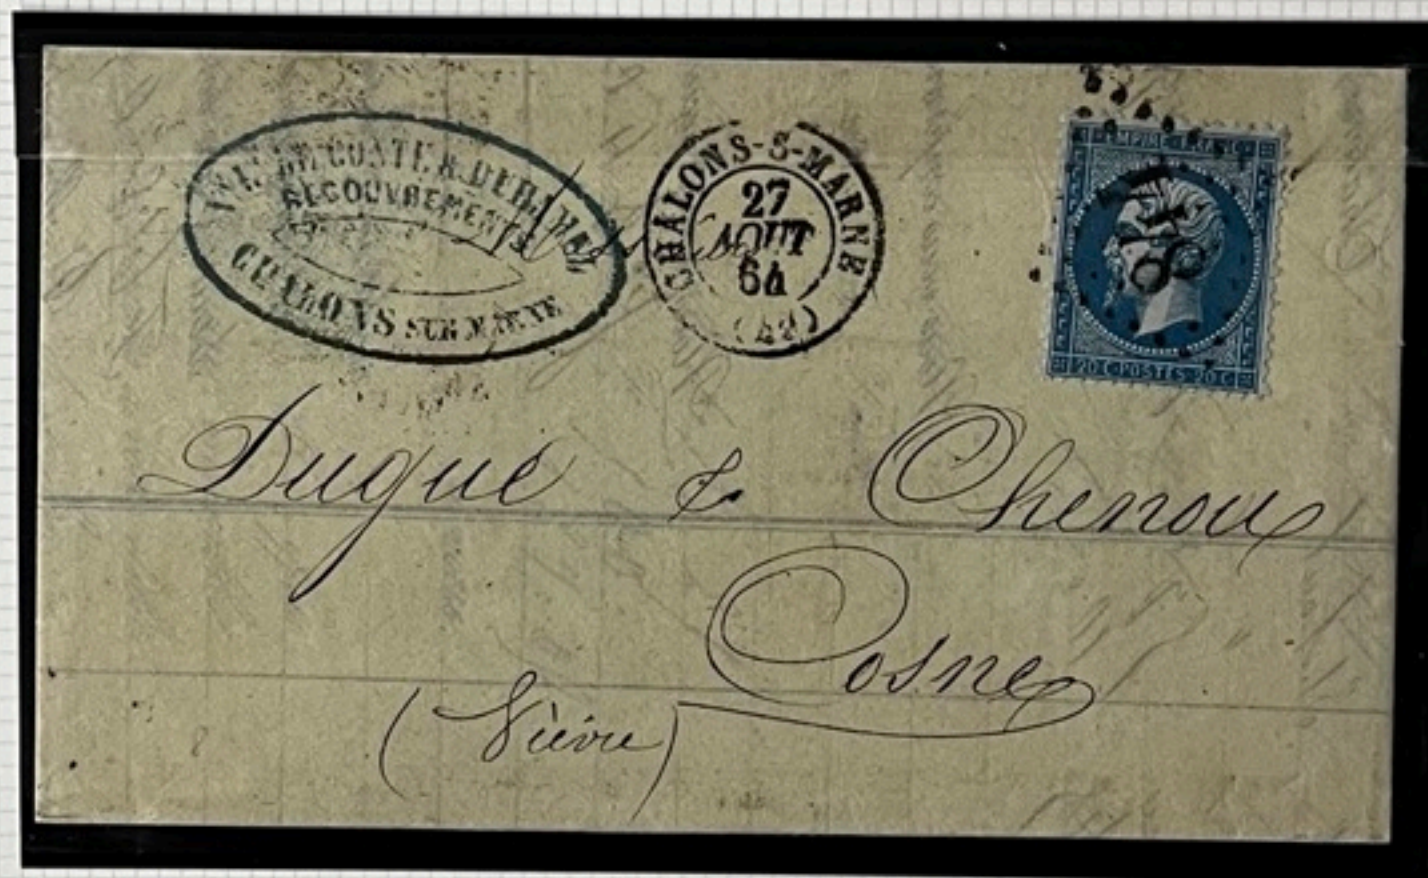 RECOUVREMENTS
CHALONS SUR MARNE
CHALONS-S-MARNE
27
AOUT
64
EMPIRE FRANC
20 C POSTES 20 C
Messieurs
Dugué & Chenou
Cosne
(Nièvre)